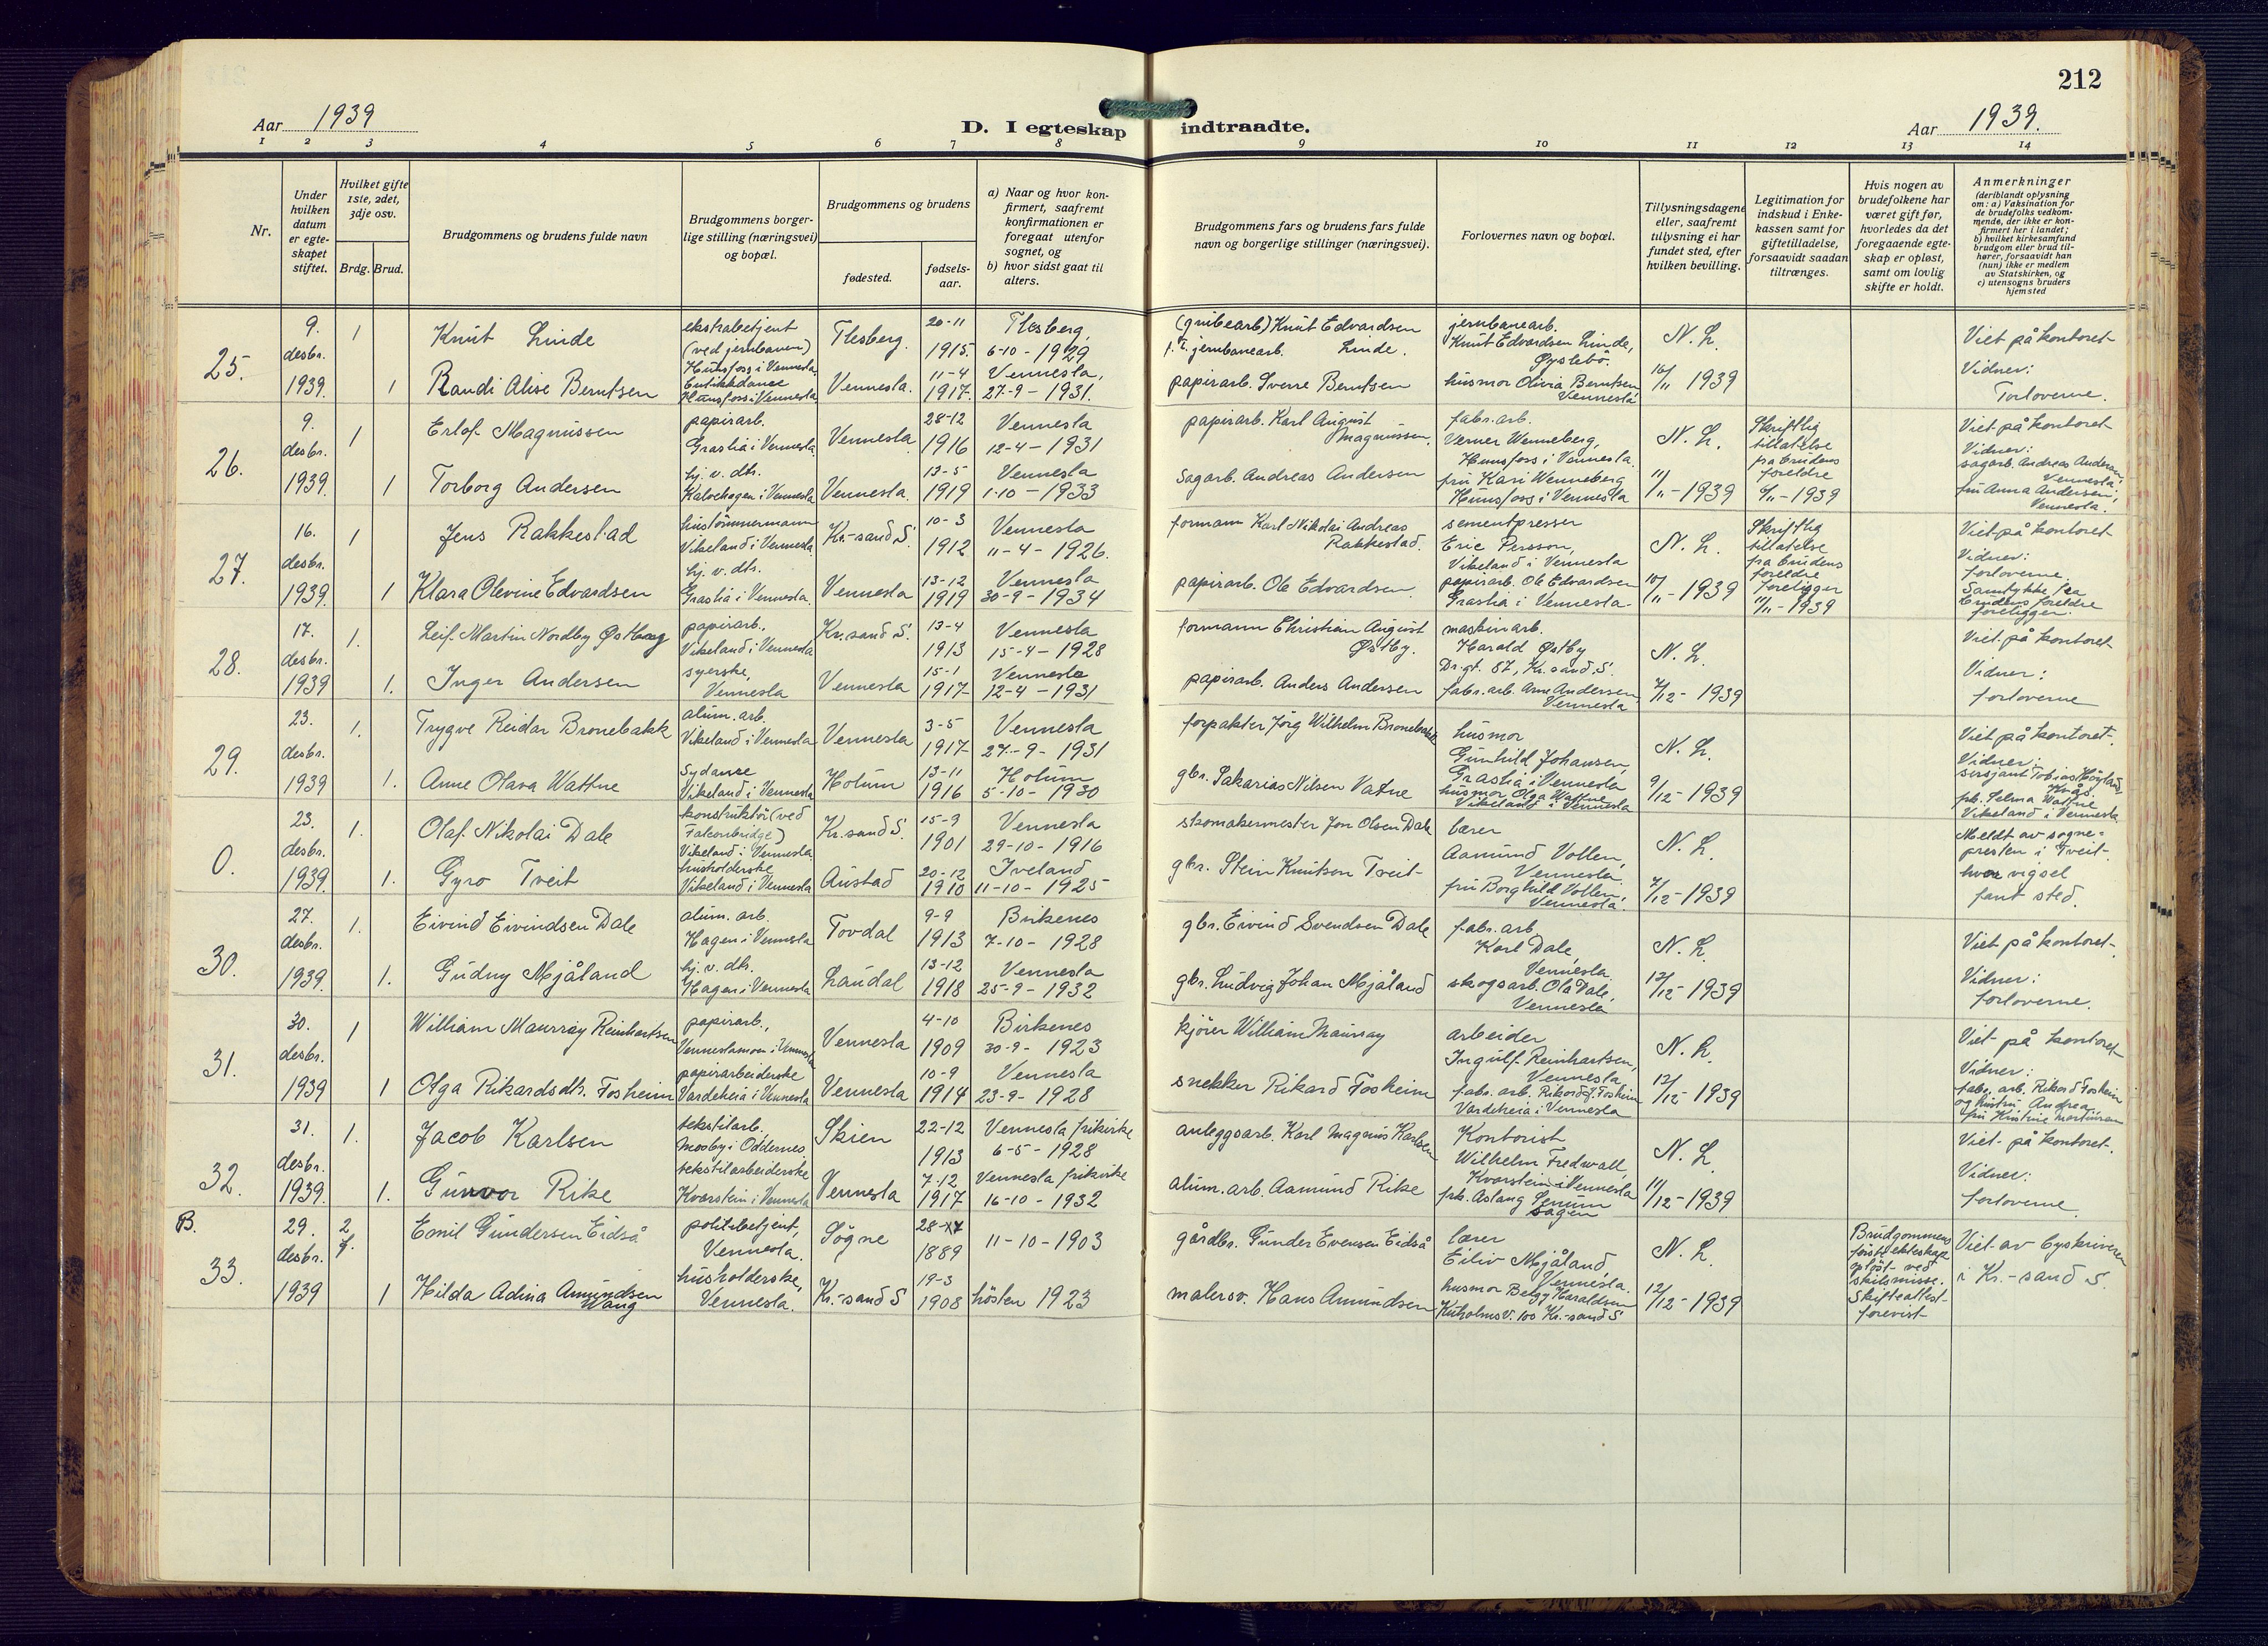 212
Aar 1939
D. I egteskap indtraadte.
Aar 1939.
1 2 3 4 5 6 7 8 9 10 11 12 13 14
Nr.
Under hvilken datum er egteskapet stiftet.
Hvilket gifte 1ste, 2det, 3dje osv.
Brdg. Brud.
Brudgommens og brudens fulde navn
Brudgommens borgerlige stilling (næringsvei) og bopæl.
Brudgommens og brudens
fødested.
fødselsaar.
a) Naar og hvor konfirmert, saafremt konfirmationen er foregaat utenfor sognet, og
b) hvor sidst gaat til alters.
Brudgommens fars og brudens fars fulde navn og borgerlige stillinger (næringsvei).
Forlovernes navn og bopæl.
Tillysningsdagene eller, saafremt tillysning ei har fundet sted, efter hvilken bevilling.
Legitimation for indskud i Enkekassen samt for giftetilladelse, forsaavidt saadan tiltrænges.
Hvis nogen av brudefolkene har været gift før, hvorledes da det foregaaende egteskap er opløst, samt om lovlig skifte er holdt.
Anmerkninger
(deriblandt oplysning om: a) Vaksination for de brudefolks vedkommende, der ikke er konfirmert her i landet;
b) hvilket kirkesamfund brudgom eller brud tilhører, forsaavidt han (hun) ikke er medlem av Statskirken, og
c) utensogns bruders hjemsted
25.
9. desbr. 1939.
1
Knut Linde
ekstrabetjent (ved jernbanen) Hunsfoss i Vennesla
Flesberg.
20-11 1915.
Flesberg, 6-10-1929
(grubearb) Knut Edvardsen
f.t. jernbanearb. Linde.
jernbanearb. Knut Edvardsen Linde, Øyslebö.
N. L.
16/11 1939
Viet på kontoret
Vidner:
Forloverne.
1
Randi Alise Berntsen
Butikkdame Hunsfoss i Vennesla
Vennesla.
11-4 1917.
Vennesla, 27-9-1931.
papirarb. Sverre Berntsen
husmor Olivia Berntsen Vennesla
26.
9. desbr. 1939.
1
Erlof Magnussen
papirarb. Graslia i Vennesla
Vennesla
28-12 1916
Vennesla 12-4-1931
papirarb. Karl August Magnussen.
fabr.arb. Verner Wenneberg, Hunsfoss i Vennesla.
N. L.
11/11-1939
Skriftlig tillatelse fra brudens foreldre 6/11-1939
Viet på kontoret
Vidner: sagarb. Andreas Andersen, Vennesla. fru Anna Andersen, Vennesla.
1
Torborg Andersen
hj. v. dtr. Kalvehagen i Vennesla
Vennesla.
13-5 1919
Vennesla 1-10-1933
Sagarb. Andreas Andersen
fru Kari Wenneberg Hunsfoss i Vennesla
27.
16. desbr. 1939.
1
Jens Rakkestad
hustömmermann Vikeland i Vennesla
Kr.-sand S.
10-3 1912
Vennesla 11-4-1926.
formann Karl Nikolai Andreas Rakkestad.
sementpresser Eric Persson, Vikeland i Vennesla
N. L.
10/11-1939
Skriftlig tillatelse fra brudens foreldre foreligger 11/11-1939
Viet på kontoret
Vidner: forloverne
Samtykke fra brudens foreldre foreligger.
1
Klara Olevine Edvardsen
hj. v. dtr. Graslia i Vennesla.
Vennesla
13-12 1919
Vennesla 30-9-1934
papirarb. Ole Edvardsen.
papirarb. Ole Edvardsen Graslia i Vennesla.
28.
17. desbr. 1939
1.
Leif Martin Nordby Østberg
papirarb., Vikeland i Vennesla
Kr.sand S.
13-4 1913
Vennesla 15-4-1928
formann Christian August Østby.
maskinarb. Harald Østby Dr.gt. 87, Kr.sand S.
N. L.
7/12-1939
Viet på kontoret
Vidner: forloverne
1.
Inger Andersen
syerske, Vennesla
Vennesla
15-1 1917
Vennesla 12-4-1931
papirarb. Anders Andersen
fabr.arb. Arne Andersen Vennesla
29.
23. desbr. 1939
1.
Trygve Reidar Bronebakk
alum.arb. Vikeland i Vennesla
Vennesla
3-5 1917
Vennesla 27-9-1931
forpakter Jörg Wilhelm Bronebakk
husmor Gunhild Johansen, Graslia i Vennesla
N. L.
9/12-1939
Viet på kontoret.
Vidner: sersjant Tobias Høyland, Kvås. frk. Selma Wattne Vikeland i Vennesla
1.
Anne Olava Wattne
Sydame Vikeland i Vennesla
Holum
13-11 1916
Holum 5-10-1930
gbr. Sakarias Nilsen Vatne
husmor Olga Wattne Vikeland i Vennesla
0.
23. desbr. 1939.
1.
Olaf Nikolai Dale
konstruktör (ved Falconbridge) Vikeland i Vennesla.
Kr.sand S.
15-9 1901
Vennesla 29-10-1916
skomakermester Jon Olsen Dale
lærer Aamund Vollen, Vennesla
N. L.
7/12-1939
Meldt av sognepresten i Tveit, hvor vigsel fant sted.
1.
Gyro Tveit
husholderske Vikeland i Vennesla
Austad
20-12 1910
Iveland 11-10-1925
gbr. Stein Knutson Tveit
fru Borghild Vollen, Vennesla.
30.
27. desbr. 1939.
1.
Eivind Eivindsen Dale
alum. arb. Hagen i Vennesla
Tovdal
9-9 1913
Birkenes 7-10-1928
gbr. Eivind Svendsen Dale
fabr. arb Karl Dale, Vennesla
N. L.
12/12-1939
Viet på kontoret.
Vidner: forloverne.
1.
Gudny Mjåland
hj. v. dtr. Hagen i Vennesla
Laudal
13-12 1918
Vennesla 25-9-1932
gbr. Ludvig Johan Mjåland
skogsarb. Ola Dale, Vennesla
31.
30. desbr. 1939
1
William Maurray Reinhartsen
papirarb., Venneslamoen i Vennesla
Vennesla
4-10 1909
Birkenes 30-9-1923
kjörer William Maurray
arbeider Ingulf Reinhartsen, Vennesla
N. L.
12/12-1939
Viet på kontoret
Vidner: fabr. arb. Rikard Fosheim og hustru Andrea fru Kristine Mortensen
1
Olga Rikardsdtr. Fosheim
papirarbeiderske Vardeheia i Vennesla
Vennesla
10-9 1914
Vennesla 23-9-1928
snekker Rikard Fosheim
fabr. arb. Rikard Fosheim Vardeheia i Vennesla
32.
31. desbr. 1939.
1.
Jacob Karlsen
tekstilarb. Mosby i Oddernes
Skien
22-12 1913
Vennesla frikirke 6-5-1928
anleggsarb. Karl Magnus Karlsen
Kontorist Wilhelm Fredwall, Kvarstein i Vennesla
N. L.
11/12-1939
Viet på kontoret.
Vidner: forloverne.
1.
Gunvor Rike
tekstilarbeiderske Kvarstein i Vennesla
Vennesla
7-12 1917
Vennesla frikirke 16-10-1932
alum.arb. Aamund Rike
frk. Aslaug
B.
33.
29. desbr. 1939
2 g.
Emil Gundersen Eidså
politibetjent, Vennesla.
Sögne
28- 1889
11-10-1903
gårdbr. Gunder Evensen Eidså
lærer Eiliv Mjåland, Vennesla.
N. L.
12/12-1939
Brudgommens förste ekteskap oplöst ved skilsmisse. Skifteattest forevist
Viet av byskriveren i Kr.-sand S.
1
Hilda Adina Amundsen Waug
husholderske, Vennesla.
Kr.-sand S
19-3 1908
hösten 1923
malersv. Hans Amundsen
husmor Haraldsen Kuholmsv. 100 Kr.-sand S